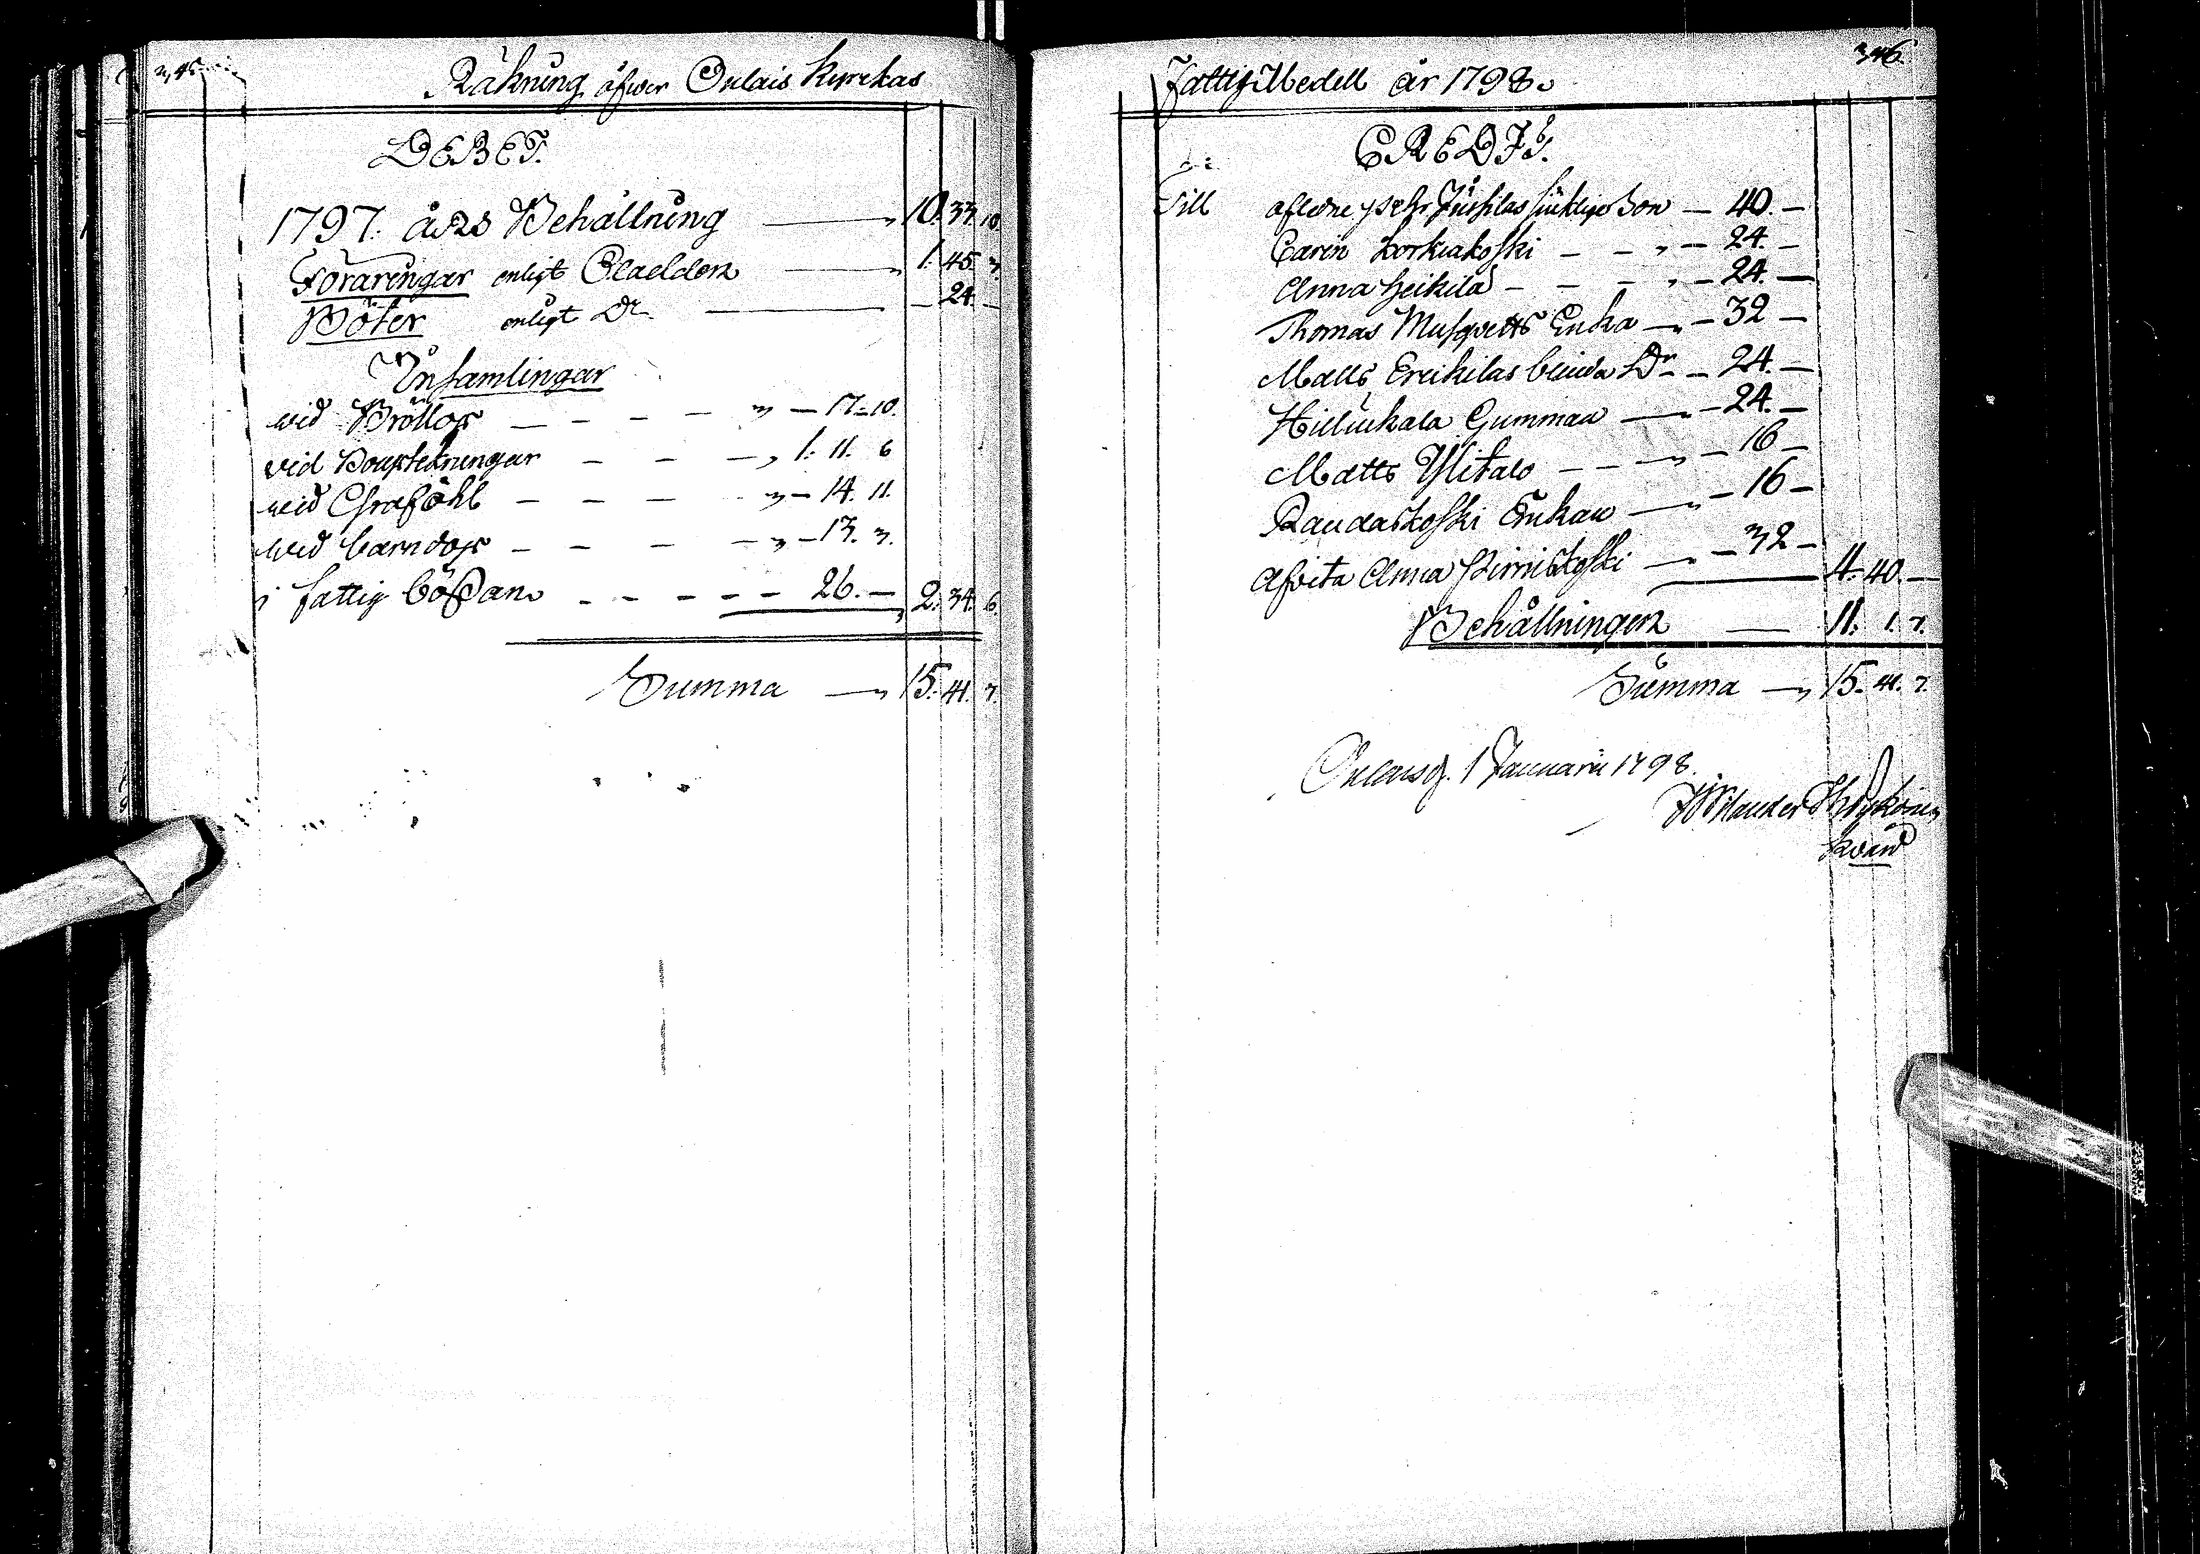 345.
Räkning öfwer Oulais Kyrckas
DEBET.
1797. års Behållning 10. 33. 10.
Föräringar enligt Claelden 1. 45. 3.
Böter enligt Do - 24. -
Insamlingar
wid Bröllop - 17. 10.
vid Kyrktagningar 1. 11. 6
wid Graföhl - 14. 11.
wid barndop - 13. 3.
i fattig bössan 26. - 2. 34. 6.
Summa 15. 41. 7.
346.
Fattig Medell år 1798.
CREDIT.
Till afledne Pehr Son - 40. -
Carin Korkiakoski - 24. -
Anna Heikilä - 24. -
Thomas Musqvetts Enka - 32 -
Matts Ereikilas blinda Dr - 24. -
Hilliukala Gumman - 24. -
Matts Ylitalo - 16 -
Raudaskoski Enkan - 16 -
Afvita Anna - 32 - 4. 40. -
Behållningen 11. 1. 7.
Summa 15. 41. 7.
Oulais d. 1 Januarii 1798.